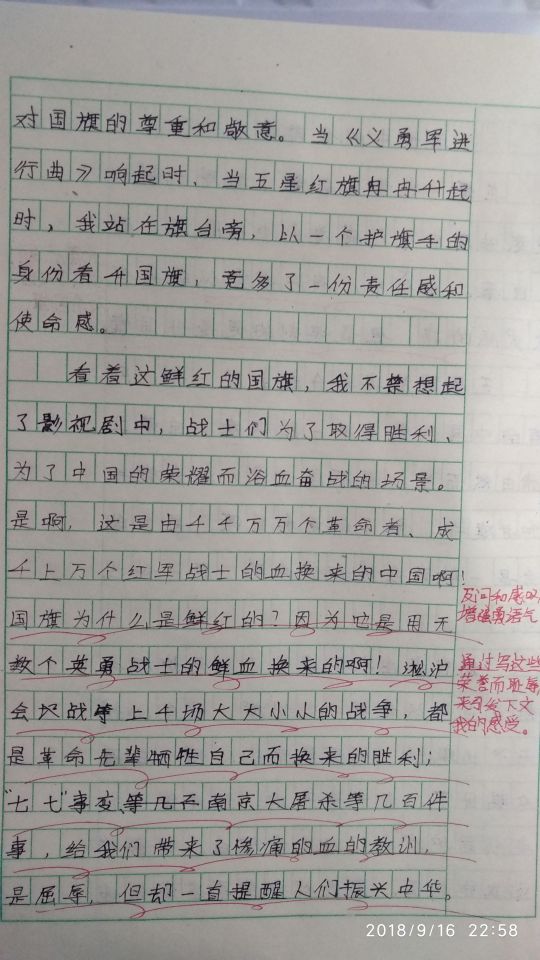 对国旗的尊重和敬意。当《义勇军进
行曲》响起时、当五星红旗冉冉升起
时，我站在旗台旁，以一个护旗手的
身份看升国旗，竟多了一份责任感和
使命感。
看着这鲜红的国旗，我不禁想起
了影视剧中，战士们为了取得胜利、
为了中国的荣耀而浴血奋战的场景。
是啊，这是由千千万万个革命者、成
千上万个红军战士的血换来的中国啊！
国旗为什么是鲜红的？因为它是用无
数个英勇战士的鲜血换来的啊！淞沪
会战等上千场大大小小的战争，都
是革命先辈牺牲自己而换来的胜利；
“七七”事变、南京大屠杀等几百件
事，给我们带来了惨痛的血的教训，
是屈辱，但却一直提醒人们振兴中华。
反问和感叹
增强语气
通过写这些
荣誉而耻辱
来引发下文
我的感受。
2018/9/16 22:58